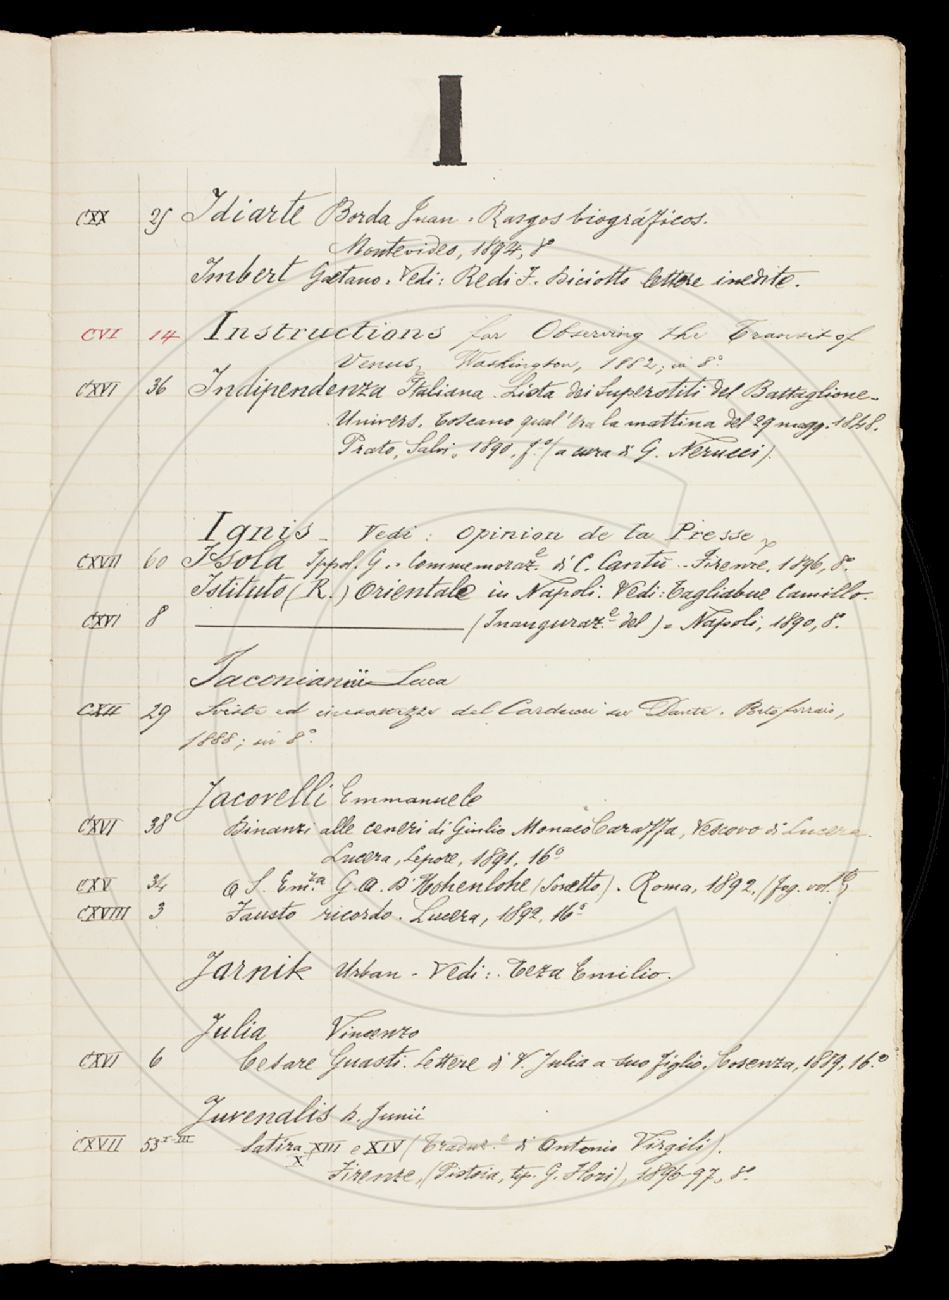 I
CXX 25 Idiarte Borda Juan. Rasgos biográficos.
Montevideo, 1894, 8º
Imbert Gaetano. Vedi: Redi F. Diciotto lettere inedite.
CVI 14 Instructions for Observing the Transit of
Venus, Washington, 1882; in 8º.
CXVI 36 Indipendenza Italiana. Lista dei Superstiti del Battaglione
Univers. Toscano qual'era la mattina del 29 magg. 1848.
Prato, Salvi, 1890, f.º (a cura di G. Nerucci).
Ignis - Vedi: Opinion de la Presse
CXVII 60 Isola Ippol. G. - Commemoraz.e di C. Cantù - Firenze, 1896, 8º.
Istituto (R.) Orientale in Napoli. Vedi: Tagliabue Camillo.
CXVI 8 ——— (Inauguraz.e del). Napoli, 1890, 8º.
Jaconianni Luca
CXII 29 Sviste ed inesattezze del Carducci su Dante. Portoferraio,
1888; in 8º.
Jacovelli Emmanuele
CXVI 38 Dinanzi alle ceneri di Giulio Monaco Caraffa, Vescovo di Lucera.
Lucera, Lepore, 1891, 16º
CXV 34 A S. Em.za G. A. D'Hohenlohe (Sonetto). Roma, 1892. (fog. vol.e)
CXVIII 3 Fausto ricordo. Lucera, 1892, 16º
Jarnik Urban - Vedi: Teza Emilio.
Julia Vincenzo
CXVI 6 Cesare Guasti. Lettere di V. Julia a suo figlio. Cosenza, 1889, 16.º
Juvenalis D. Junii
CXVII 53 I-III Satira X, XIII e XIV (Traduz.e di Antonio Virgili).
Firenze, (Pistoia, tip. G. Flori), 1896-97, 8º.